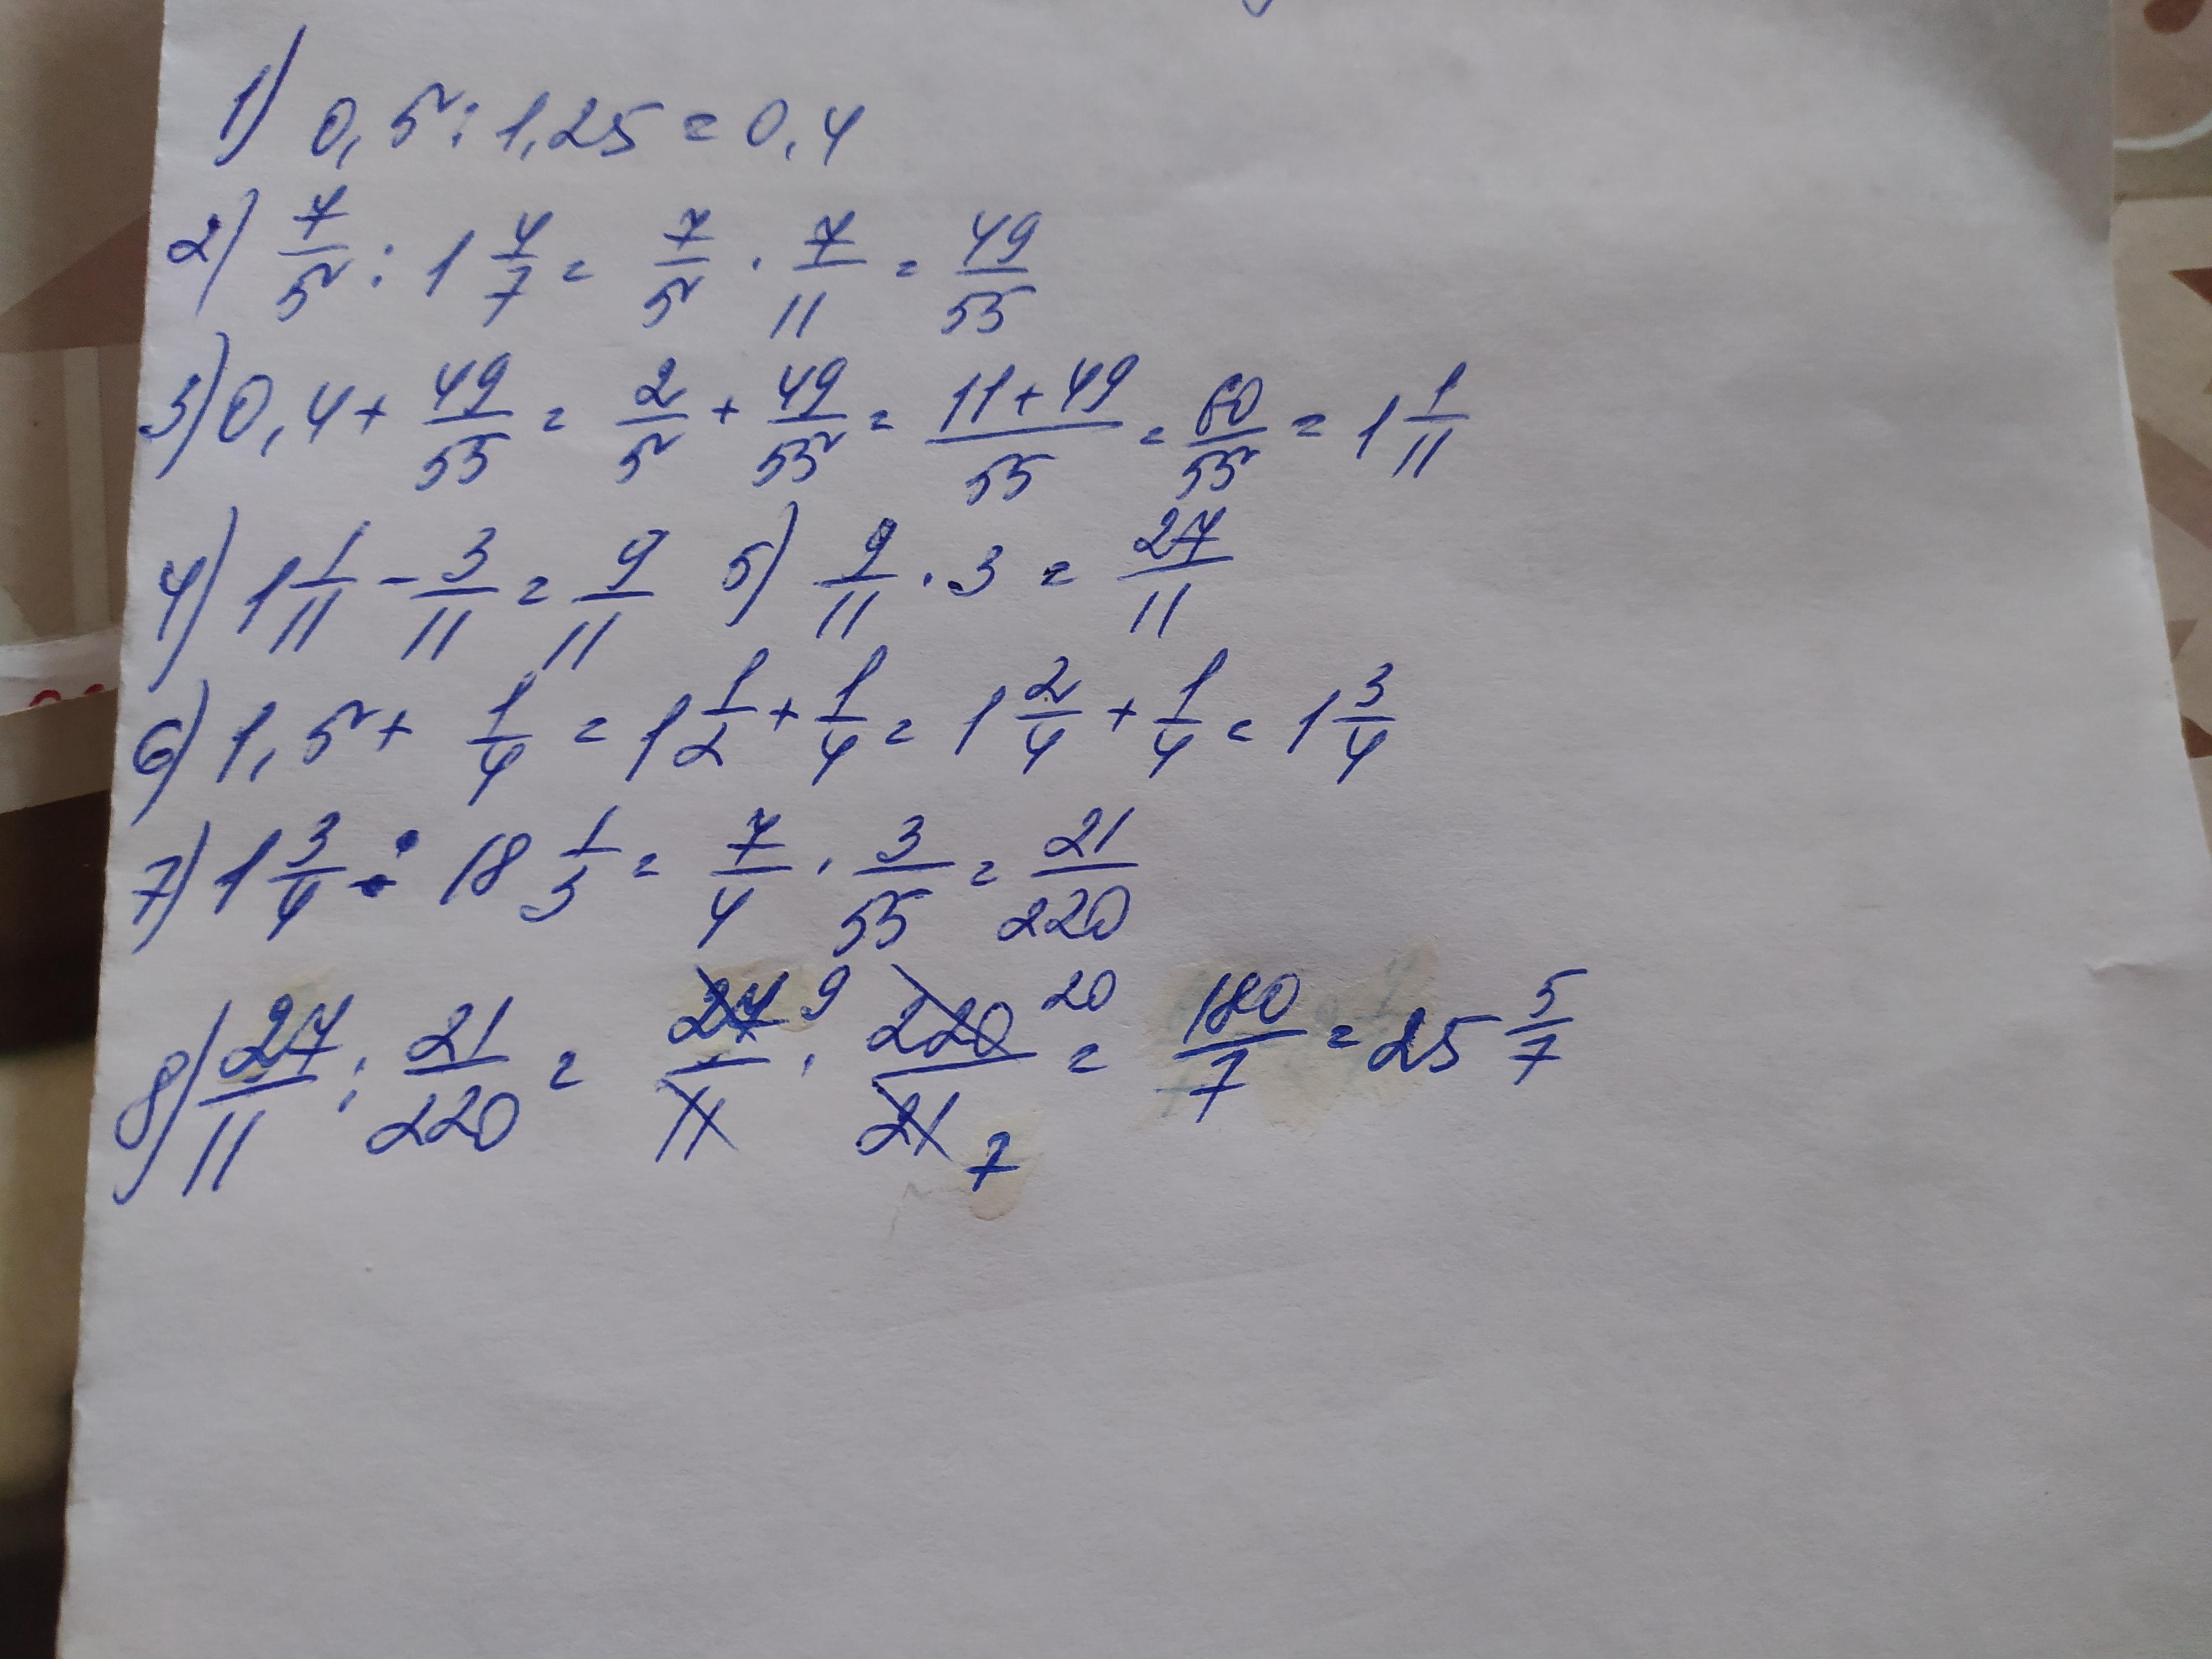 1) 0,5 : 1,25 = 0,4
2) 7/5 : 1 4/7 = 7/5 · 7/11 = 49/55
3) 0,4 + 49/55 = 2/5 + 49/55 = 11+49/55 = 60/55 = 1 1/11
4) 1 1/11 - 3/11 = 9/11 5) 9/11 · 3 = 27/11
6) 1,5 + 1/4 = 1 1/2 + 1/4 = 1 2/4 + 1/4 = 1 3/4
7) 1 3/4 : 18 1/3 = 7/4 · 3/55 = 21/220
8) 27/11 : 21/220 = 27 9/11 · 220 20/21 7 = 180/7 = 25 5/7